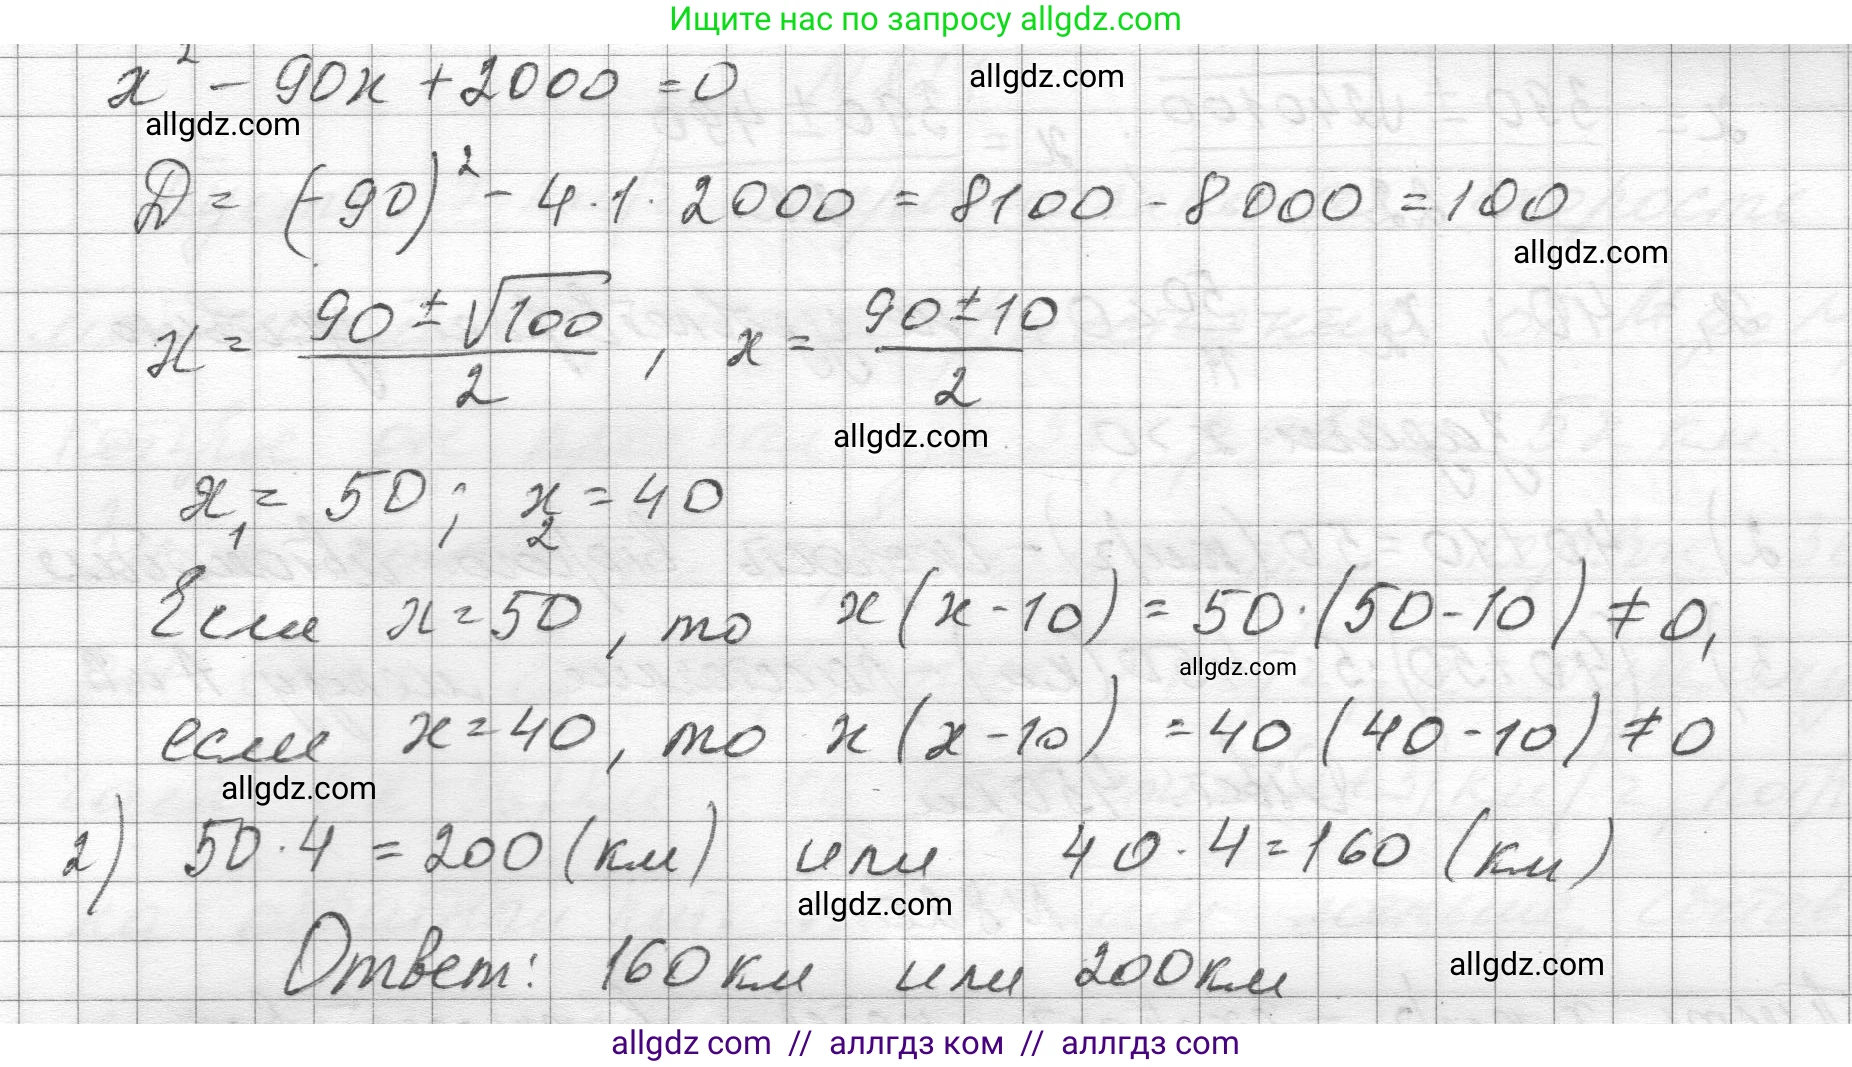 Ищите нас по запросу allgdz.com
x² - 90x + 2000 = 0
allgdz.com
allgdz.com
D = (-90)² - 4 · 1 · 2000 = 8100 - 8000 = 100
allgdz.com
x = (90 ± √100)/2 , x = (90 ± 10)/2
allgdz.com
x₁ = 50 ; x₂ = 40
Если x = 50 , то x (x - 10) = 50 · (50 - 10) ≠ 0,
allgdz.com
если x = 40 , то x (x - 10) = 40 (40 - 10) ≠ 0
allgdz.com
2) 50 · 4 = 200 (км) или 40 · 4 = 160 (км)
allgdz.com
Ответ: 160 км или 200 км
allgdz.com
allgdz com // аллгдз ком // аллгдз com